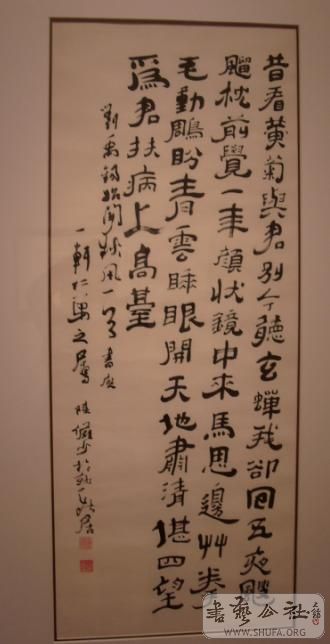 昔看黃菊與君別今聽玄蟬我卻囘五夜颼
飀枕前覺一年顏狀鏡中來馬思邊艸拳
毛動鵰盼青雲睡眼開天地肅清堪四望
爲君扶病上高臺
劉禹錫始聞秋風一首 書應
一軒仁弟之屬 陸儼少於
書藝公社
WWW.SHUFA.ORG